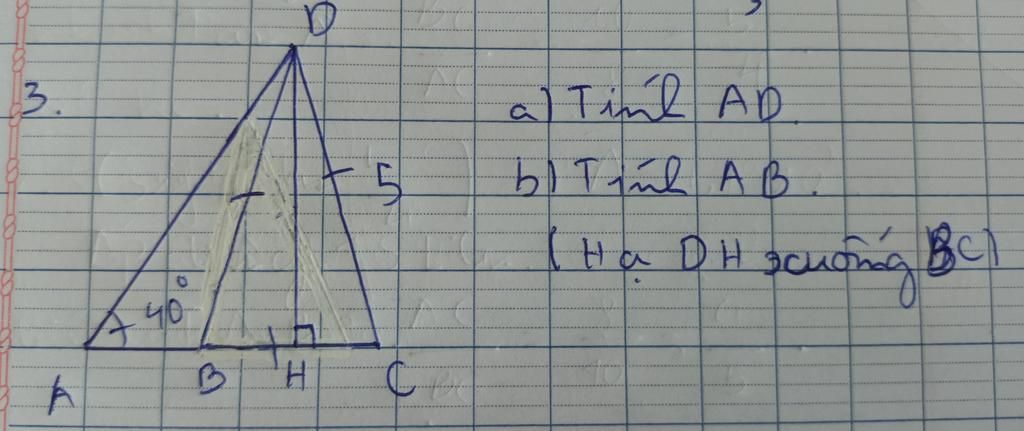 3.
D
5
40°
A
B
H
C
a) Tính AD.
b) Tính AB.
(Hạ DH xuống BC)